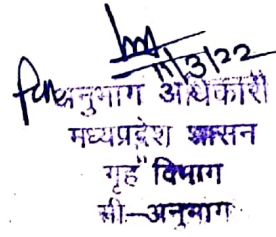 11/3/22
अनुभाग अधिकारी
मध्यप्रदेश शासन
गृह विभाग
सी-अनुभाग